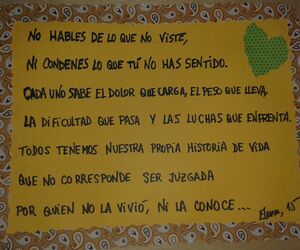 NO HABLES DE LO QUE NO VISTE,
NI CONDENES LO QUE TÚ NO HAS SENTIDO.
CADA UNO SABE EL DOLOR QUE CARGA, EL PESO QUE LLEVA,
LA DIFICULTAD QUE PASA Y LAS LUCHAS QUE ENFRENTA.
TODOS TENEMOS NUESTRA PROPIA HISTORIA DE VIDA
QUE NO CORRESPONDE SER JUZGADA
POR QUIEN NO LA VIVIÓ, NI LA CONOCE...
Elena, 15